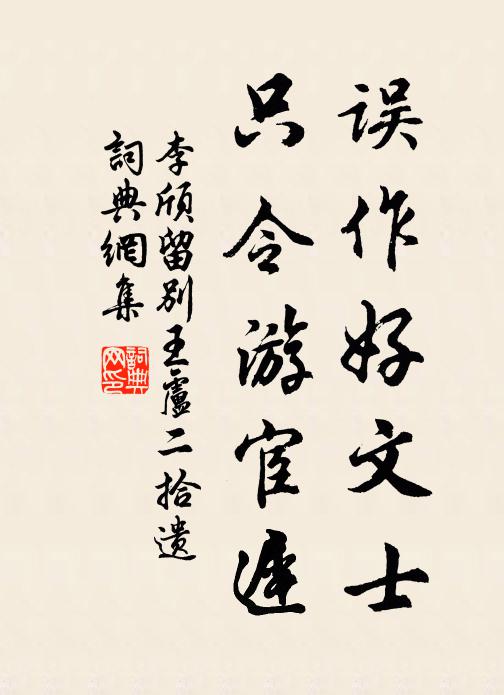 误作好文士
只令游宦遲
李颀留别王盧二拾遗
詞典網集
詞典
网印